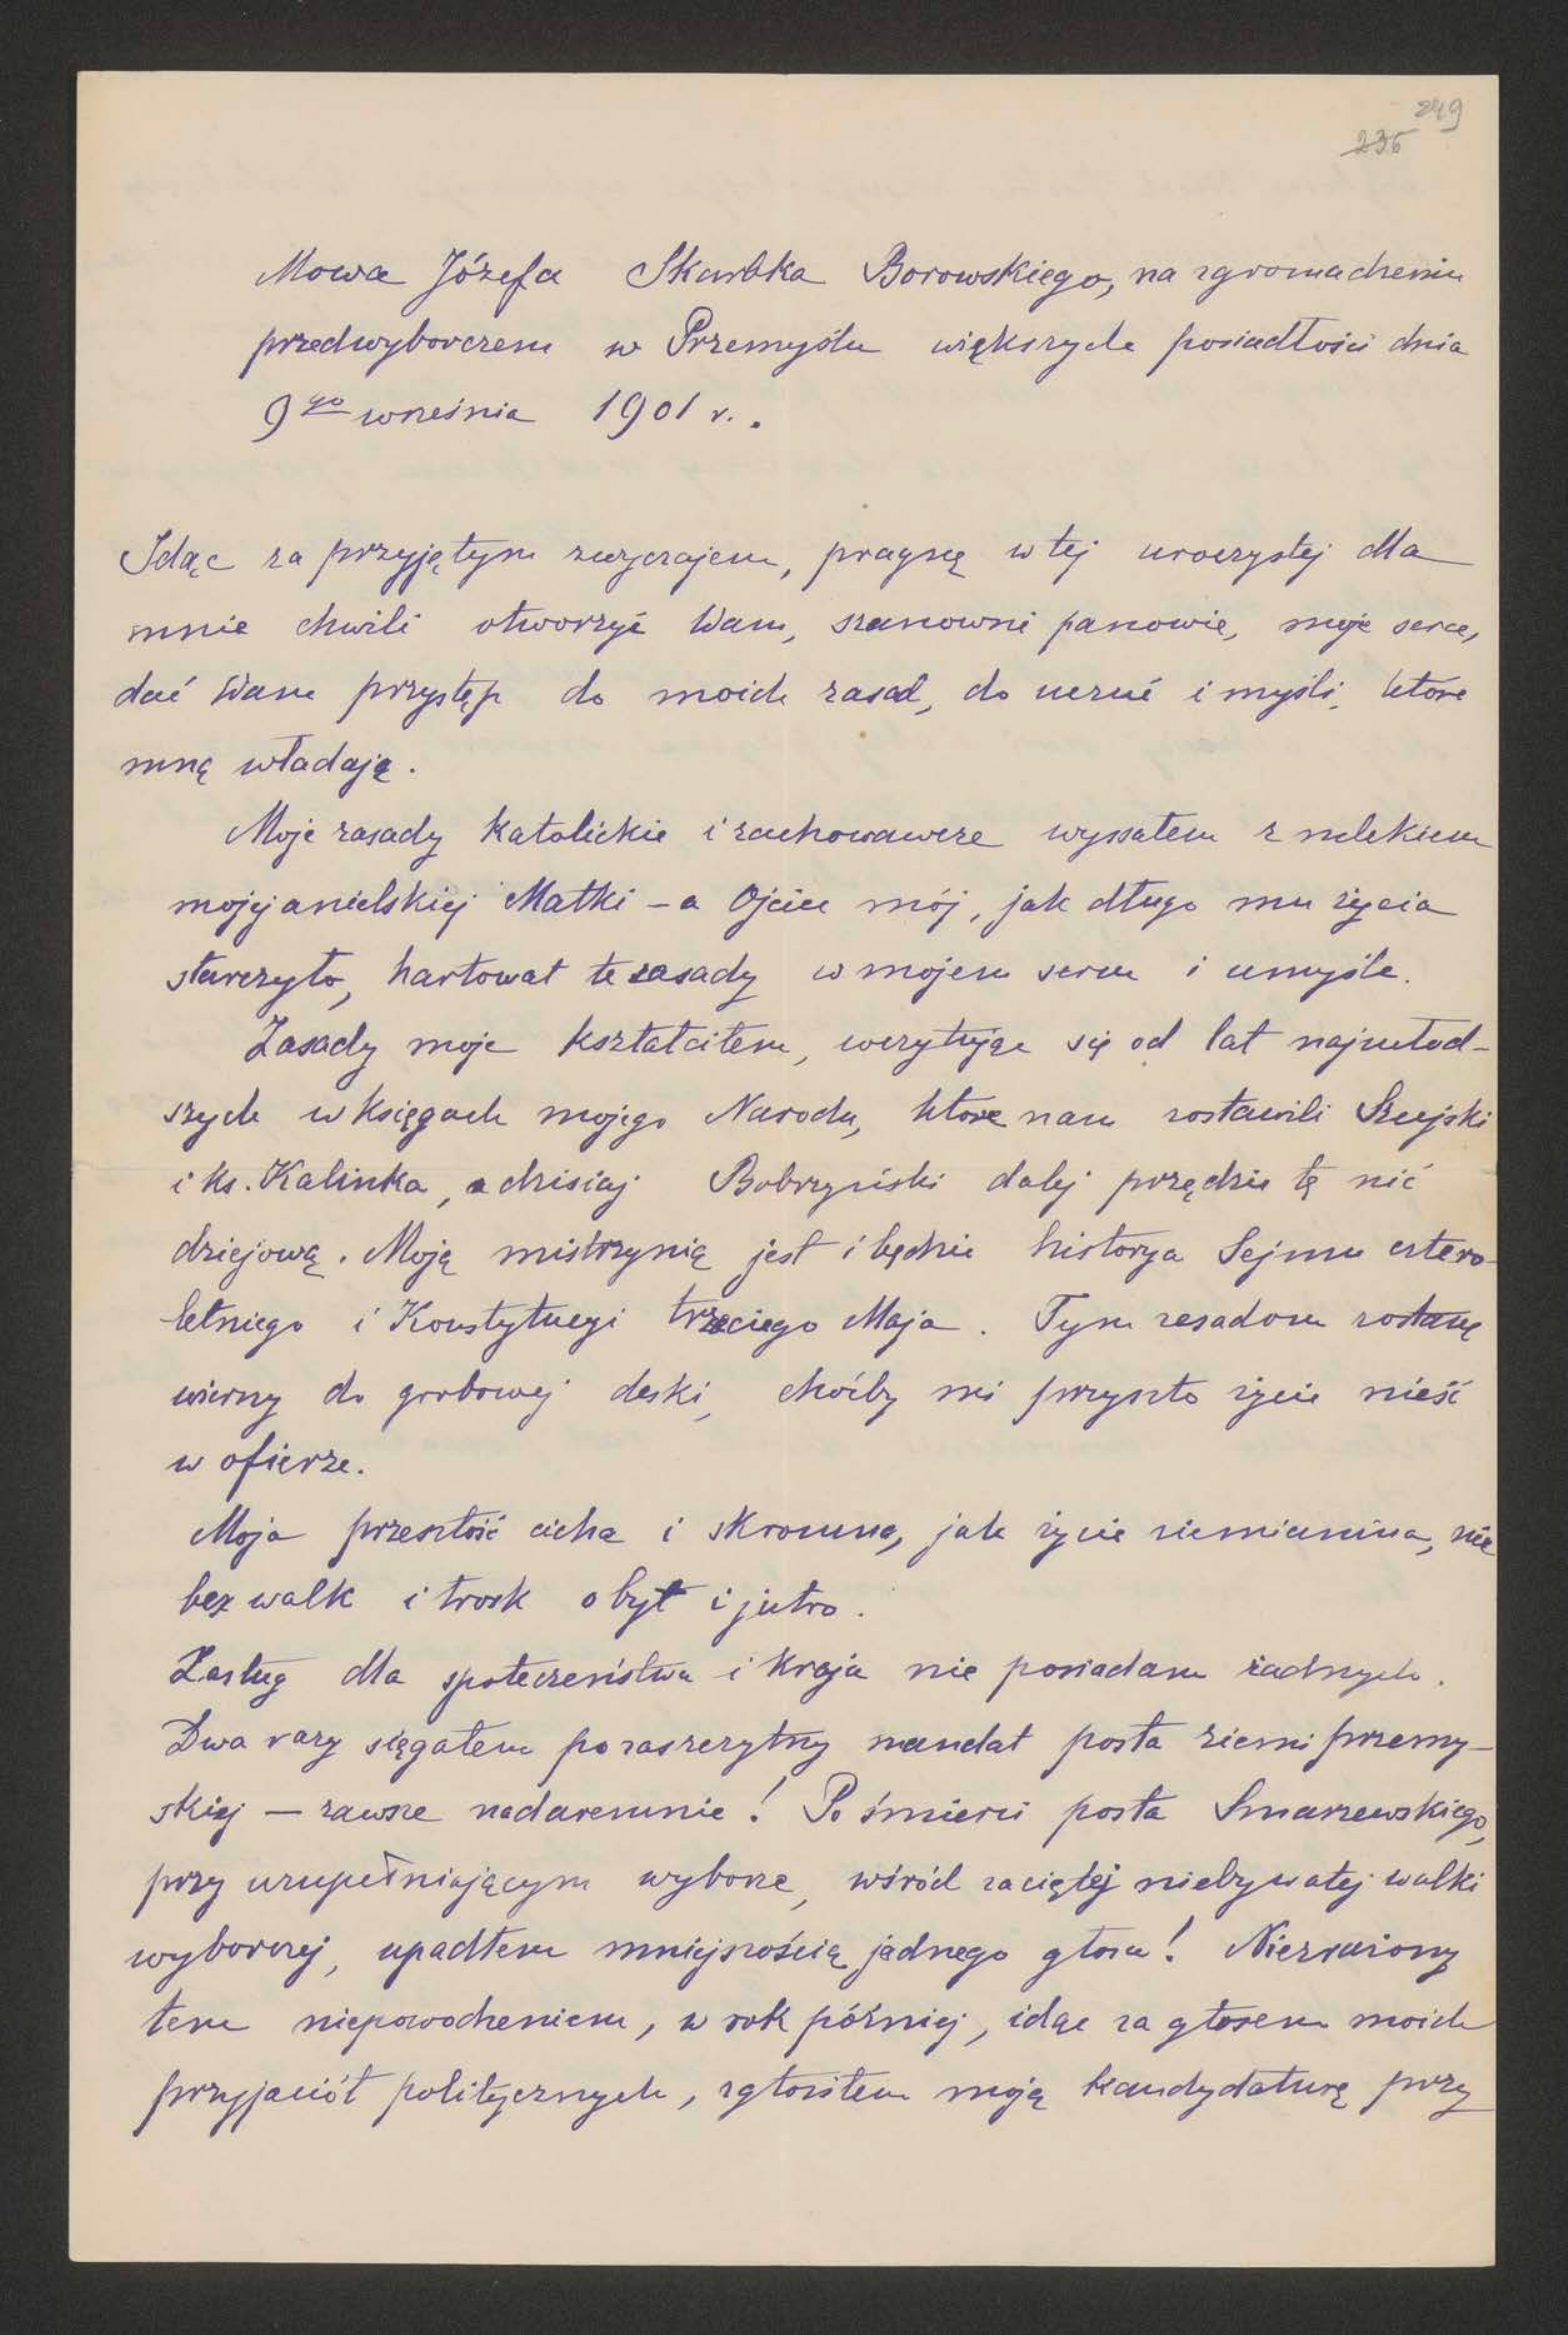 249
235
Mowa Józefa Skarbka Borowskiego, na zgromadzeniu
przedwyborczem w Przemyślu większych posiadłości dnia
9go września 1901 r..
Idąc za przyjętym zwyczajem, pragnę w tej uroczystej dla
mnie chwili otworzyć Wam, szanowni panowie, moje serce,
dać Wam przystęp do moich zasad, do uczuć i myśli, które
mną władają.
Moje zasady katolickie i zachowawcze wyssałem z mlekiem
mojej anielskiej Matki – a Ojciec mój, jak długo mu życia
starczyło, hartował te zasady w mojem sercu i umyśle.
Zasady moje kształciłem, wczytując się od lat najmłod-
szych w księgach mojego Narodu, które nam zostawili Szujski
i ks. Kalinka, a dzisiaj Bobrzyński dalej przędzie tę nić
dziejową. Moją mistrzynią jest i będzie historya Sejmu cztero-
letniego i Konstytucyi trzeciego Maja. Tym zasadom zostanę
wierny do grobowej deski, choćby mi przyszło życie nieść
w ofierze.
Moja przeszłość cicha i skromna, jak życie ziemianina, nie
bez walk i trosk o byt i jutro.
Zasług dla społeczeństwa i kraju nie posiadam żadnych.
Dwa razy sięgałem po zaszczytny mandat posła ziemi przemy-
skiej – zawsze nadaremnie! Po śmierci posła Smarzewskiego,
przy uzupełniającym wyborze, wśród zaciętej niebywałej walki
wyborczej, upadłem mniejszością jednego głosu! Niezrażony
tem niepowodzeniem, w rok później, idąc za głosem moich
przyjaciół politycznych, zgłosiłem moją kandydaturę przy